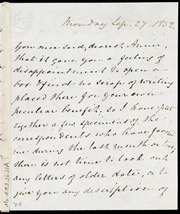 Monday Sep. 27. 1852.
You once said, dearest Anne,
that it gave you a feeling of
disappointment to open a
box & find no scrap of writing
placed there for your own
peculiar benefit, so I have put
together a few specimens of the
correspondents who have favored
me during the last month or two,
there is not time to look out
any letters of older date, or to
give you any description of